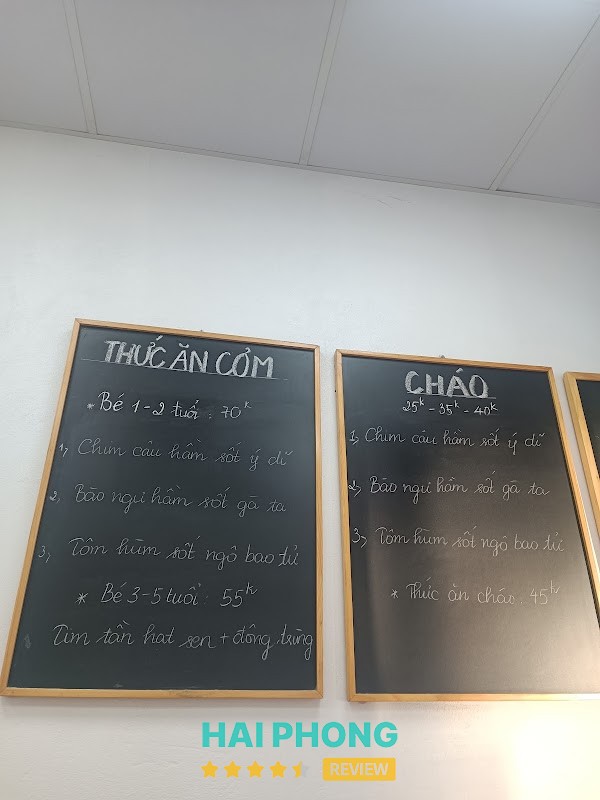 THỨC ĂN CƠM
* Bé 1-2 tuổi : 70k
1, Chim câu hầm sốt ý dĩ
2, Bào ngư hầm sốt gà ta
3, Tôm hùm sốt ngô bao tử
* Bé 3-5 tuổi : 55k
Tim tần hạt sen + đông trùng
CHÁO
25k - 35k - 40k
1, Chim câu hầm sốt ý dĩ
2, Bào ngư hầm sốt gà ta
3, Tôm hùm sốt ngô bao tử
* Thức ăn cháo : 45k
HAI PHONG
REVIEW